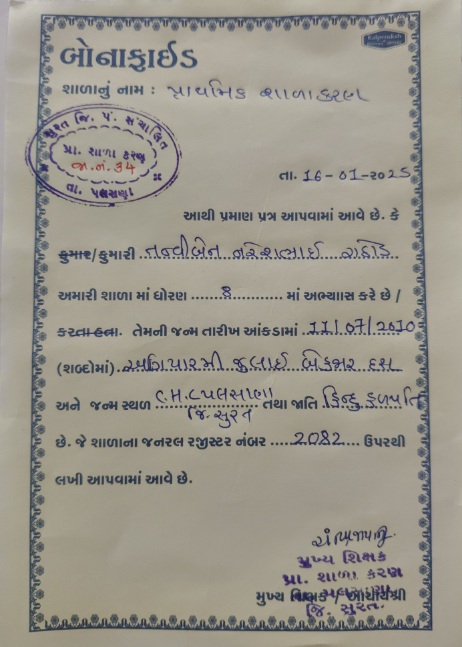 બોનાફાઈડ
શાળાનું નામ : પ્રાથમિક શાળા કરણ
સુરત જિ. પં. સંચાલિત
પ્રા. શાળા કરણ
જા.નં. 34
તા. પલસાણા
તા. 16-01-2025
આથી પ્રમાણ પત્ર આપવામાં આવે છે. કે
કુમાર/કુમારી તન્વીબેન નરેશભાઈ રાઠોડ
અમારી શાળા માં ધોરણ ........8............ માં અભ્યાાસ કરે છે /
કરતા હતા. તેમની જન્મ તારીખ આંકડામાં 11/07/2010
(શબ્દોમાં) અગિયારમી જુલાઈ બેહજાર દસ
અને જન્મ સ્થળ C.H.C પલસાણા તથા જાતિ હિન્દુ હળપતિ
જિ. સુરત
છે. જે શાળાના જનરલ રજીસ્ટર નંબર .....2082..... ઉપરથી
લખી આપવામાં આવે છે.
મુખ્ય શિક્ષક
પ્રા. શાળા કરણ
મુખ્ય શિક્ષક / આચાર્યશ્રી
જિ. સુરત.